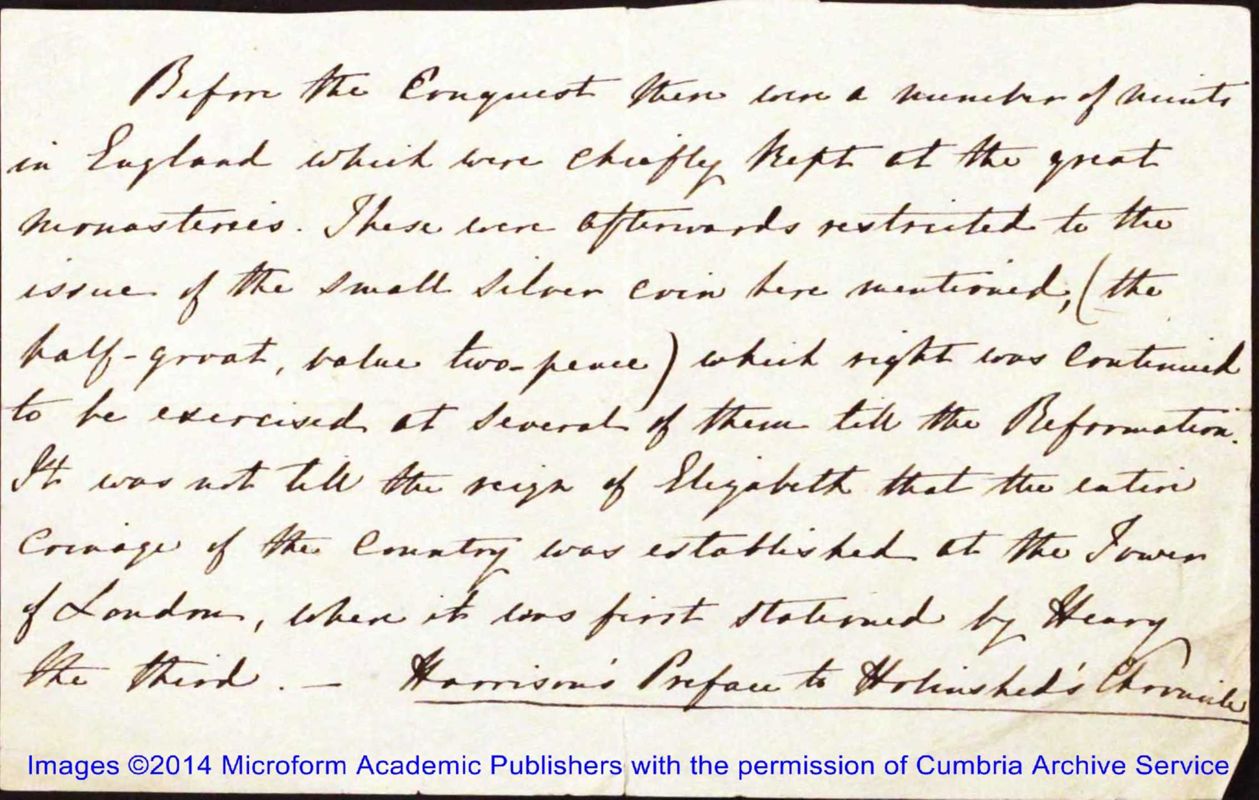 Before the Conquest there were a number of mints
in England which were chiefly kept at the great
monasteries. These were afterwards restricted to the
issue of the small silver coin here mentioned, (the
half-groat, value two-pence) which right was continued
to be exercised at several of them till the Reformation.
It was not till the reign of Elizabeth that the entire
coinage of the Country was established at the Tower
of London, where it was first stationed by Henry
the third. — Harrison's Preface to Holinshed's Chronicle
Images ©2014 Microform Academic Publishers with the permission of Cumbria Archive Service